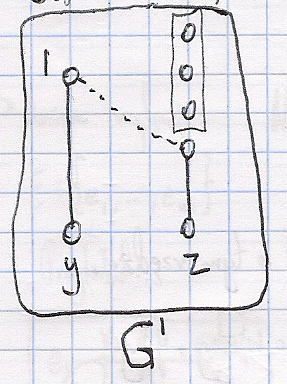 1
y z
G'